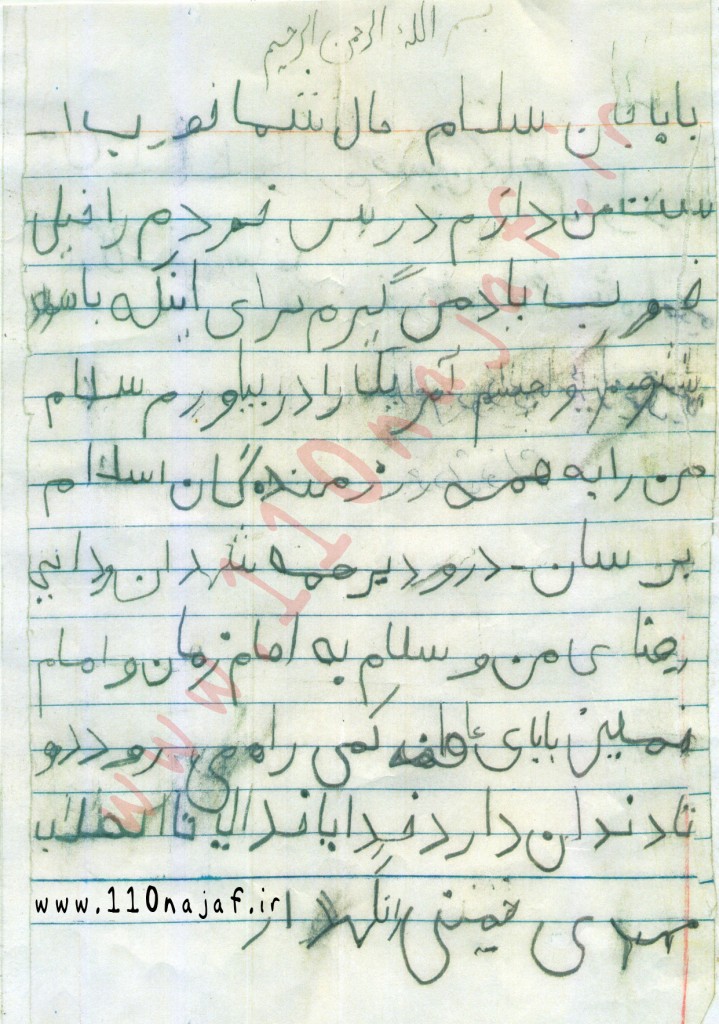 بسم الله الرحمن الرحیم
باباجان سلام حال شما خوب ا_
ست من دارم درس خودم را خیلی
خوب یاد می گیرم برای اینکه باسواد
بشوم و چشم آمریکا را در بیاورم سلام
من را به همه رزمندگان اسلام
برسان_ درود بر همه شهدان و دایی
رضای من و سلام به امام زمان و امام
خمینی بابای فاطمه کمی راه می رود دو
تا دندان دارد خدایا خدایا تا انقلاب
مهدی خمینی را نگهدار
www.110najaf.ir
www.110najaf.ir